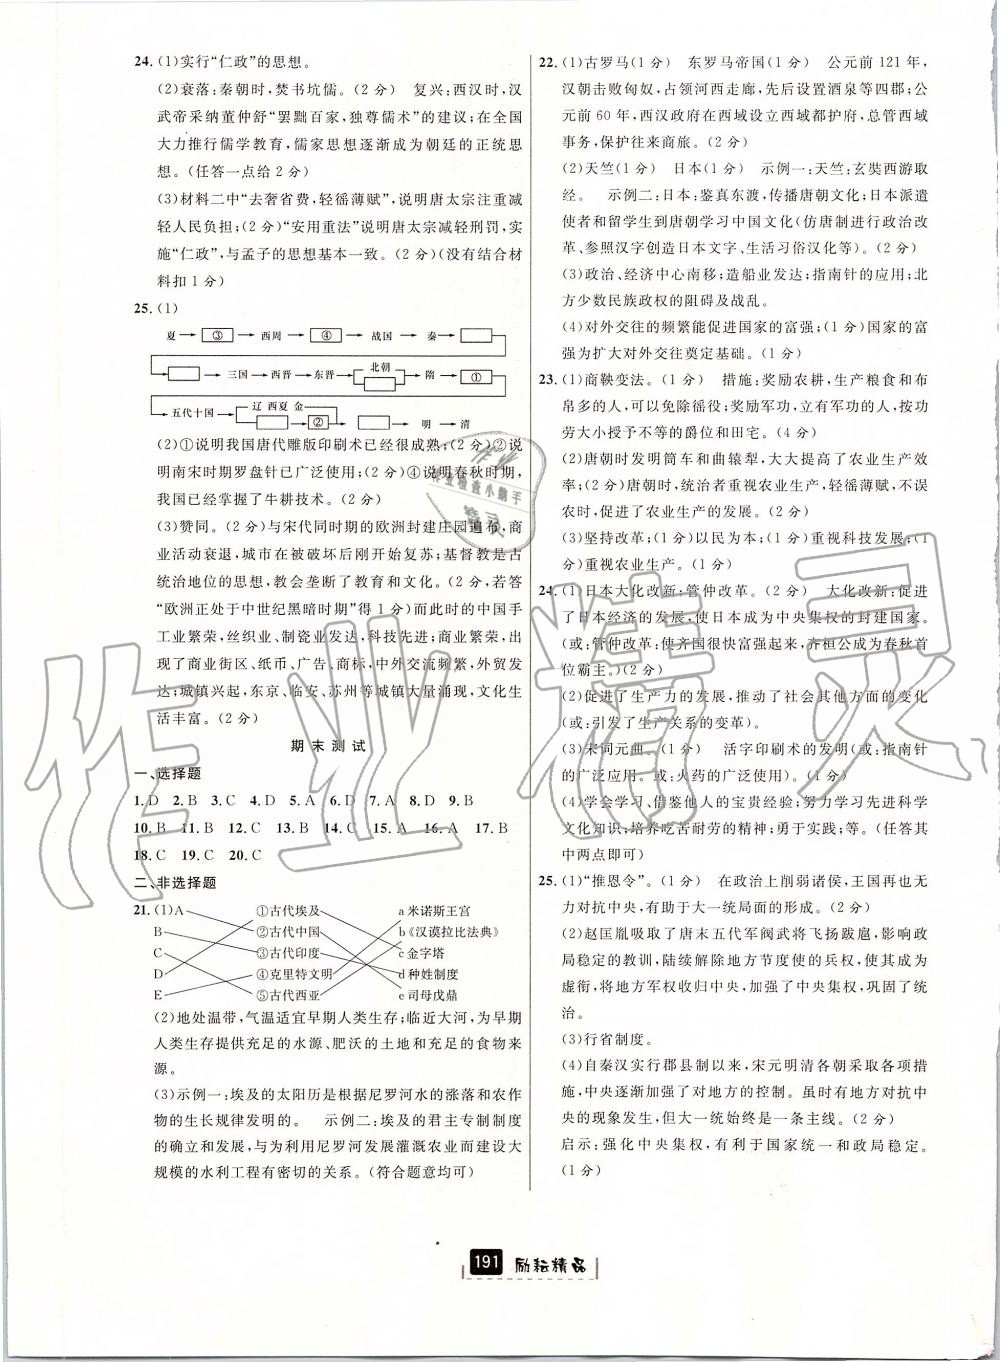 24.(1)实行“仁政”的思想。
(2)衰落:秦朝时,焚书坑儒。(2分) 复兴:西汉时,汉
武帝采纳董仲舒“罢黜百家,独尊儒术”的建议;在全国
大力推行儒学教育,儒家思想逐渐成为朝廷的正统思
想。(任答一点给2分)
(3)材料二中“去奢省费,轻徭薄赋”,说明唐太宗注重减
轻人民负担;(2分)“安用重法”说明唐太宗减轻刑罚,实
施“仁政”,与孟子的思想基本一致。(2分)(没有结合材
料扣1分)
25.(1)
夏 ③ 西周 ④ 战国 秦
三国 西晋 东晋 北朝 隋 ①
五代十国 辽 西夏 金 ② 明 清
(2)①说明我国唐代雕版印刷术已经很成熟;(2分)②说
明南宋时期罗盘针已广泛使用;(2分)④说明春秋时期,
我国已经具有了牛耕技术。(2分)
(3)赞同。(2分)与宋代同时期的欧洲封建庄园遍布,商
业活动衰退,城市在被破坏后刚开始复苏;基督教是占
统治地位的思想,教会垄断了教育和文化。(2分,若答
“欧洲正处于中世纪黑暗时期”得1分)而此时的中国手
工业繁荣,丝织业、制瓷业发达,科技先进;商业繁荣,出
现了商业街区、纸币、广告、商标,中外交流频繁,外贸发
达;城镇兴起,东京、临安、苏州等城镇大量涌现,文化生
活丰富。(2分)
期末测试
一、选择题
1.D 2.B 3.C 4.D 5.A 6.D 7.A 8.D 9.B
10.B 11.B 12.C 13.B 14.C 15.A 16.A 17.B
18.C 19.C 20.C
二、非选择题
21.(1)A ①古代埃及 a米诺斯王宫
B ②古代中国 b《汉谟拉比法典》
C ③古代印度 c金字塔
D ④克里特文明 d种姓制度
E ⑤古代西亚 e司母戊鼎
(2)地处温带,气温适宜早期人类生存;临近大河,为早期
人类生存提供充足的水源、肥沃的土地和充足的食物来
源。
(3)示例一:埃及的太阳历是根据尼罗河水的涨落和农作
物的生长规律发明的。 示例二:埃及的君主专制制度
的确立和发展,与为利用尼罗河发展灌溉农业而建设大
规模的水利工程有密切的关系。(符合题意均可)
22.(1)古罗马(1分) 东罗马帝国(1分) 公元前121年,
汉朝击败匈奴,占领河西走廊,先后设置酒泉等四郡;公
元前60年,西汉政府在西域设立西域都护府,总管西域
事务,保护往来商旅。(1分)
(2)天竺(1分) 日本(1分) 示例一:天竺;玄奘西游取
经。 示例二:日本;鉴真东渡,传播唐朝文化;日本派遣
使者和留学生到唐朝学习中国文化(仿唐制进行政治改
革、参照汉字创造日本文字、生活习俗汉化等)。(2分)
(3)政治、经济中心南移;造船业发达;指南针的应用;北
方少数民族政权的阻碍及战乱。
(4)对外交往的频繁能促进国家的富强;(1分)国家的富
强为扩大对外交往奠定基础。(1分)
23.(1)商鞅变法。(1分) 措施:奖励农耕,生产粮食和布
帛多的人,可以免除徭役;奖励军功,立有军功的人,按功
劳大小授予不等的爵位和田宅。(4分)
(2)唐朝时发明筒车和曲辕犁,大大提高了农业生产效
率;(2分)唐朝时,统治者重视农业生产,轻徭薄赋,不误
农时,促进了农业生产的发展。(2分)
(3)坚持改革;(1分)以民为本;(1分)重视科技发展;(1
分)重视农业生产。(1分)
24.(1)日本大化改新;管仲改革。(2分) 大化改新:促进
了日本经济的发展,使日本成为中央集权的封建国家。
(或:管仲改革:使齐国很快富强起来,齐桓公成为春秋首
位霸主。)(2分)
(2)促进了生产力的发展,推动了社会其他方面的变化
(或:引发了生产关系的变革)。(2分)
(3)宋词元曲。(1分) 活字印刷术的发明(或:指南针
的广泛应用。或:火药的广泛使用)。(1分)
(4)学会学习、借鉴他人的宝贵经验;努力学习先进科学
文化知识;培养吃苦耐劳的精神;勇于实践;等。(任答其
中两点即可)
25.(1)“推恩令”。(1分) 在政治上削弱诸侯,王国再也无
力对抗中央,有助于大一统局面的形成。(2分)
(2)赵匡胤吸取了唐末五代军阀武将飞扬跋扈,影响政
局稳定的教训,陆续解除地方节度使的兵权,被任命为文
臣,将地方军权收归中央,加强了中央集权,巩固了统
治。
(3)行省制度。
(4)自秦汉实行郡县制以来,宋元明清各朝采取各项措
施,中央逐渐加强了对地方的控制。虽时有地方对抗中
央的现象发生,但大一统始终是一条主线。(2分)
启示:强化中央集权,有利于国家统一和政局稳定。
(1分)
191 励耘精品
作业精灵